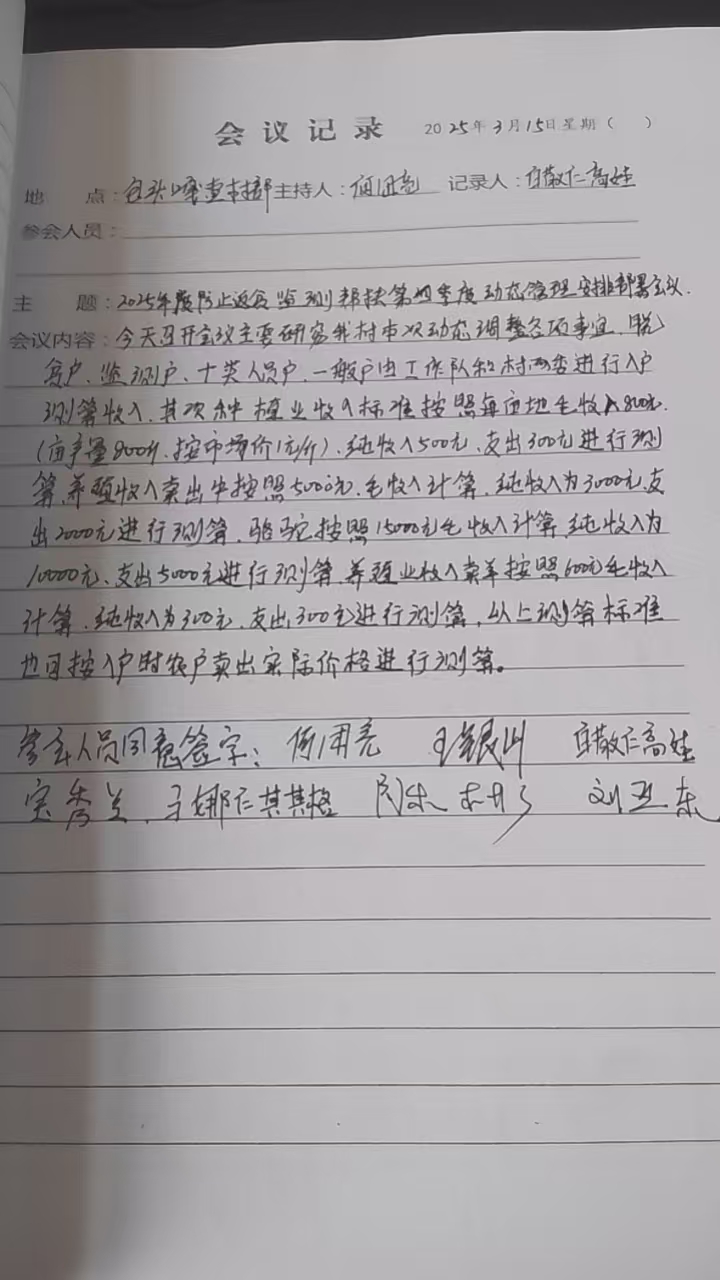 会议记录 2025年3月15日星期( )
地 点:包头嘎查本部 主持人:何团亮 记录人:白敖仁高娃
参会人员:
主 题:2025年度防止返贫监测帮扶第四季度动态管理安排部署会议.
会议内容:今天召开会议主要研究我村本次动态调整各项事宜,脱
贫户、监测户、十类人员户、一般户由工作队和村两委进行入户
测算收入,其次种植业收入标准按照每亩地毛收入800元.
(亩产量800斤.按市场价1元/斤)、纯收入500元、支出300元进行测
算,养殖收入卖出牛按照5000元.毛收入计算.纯收入为3000元,支
出2000元进行测算,骆驼按照15000元毛收入计算,纯收入为
10000元、支出5000元进行测算,养殖业收入卖羊按照600元毛收入
计算.纯收入为300元.支出300元进行测算,以上测算标准
也可按入户时农户卖出实际价格进行测算。
参会人员同意签字:何团亮 王银山 白敖仁高娃
宝秀兰、于娜仁其其格 刘卫东